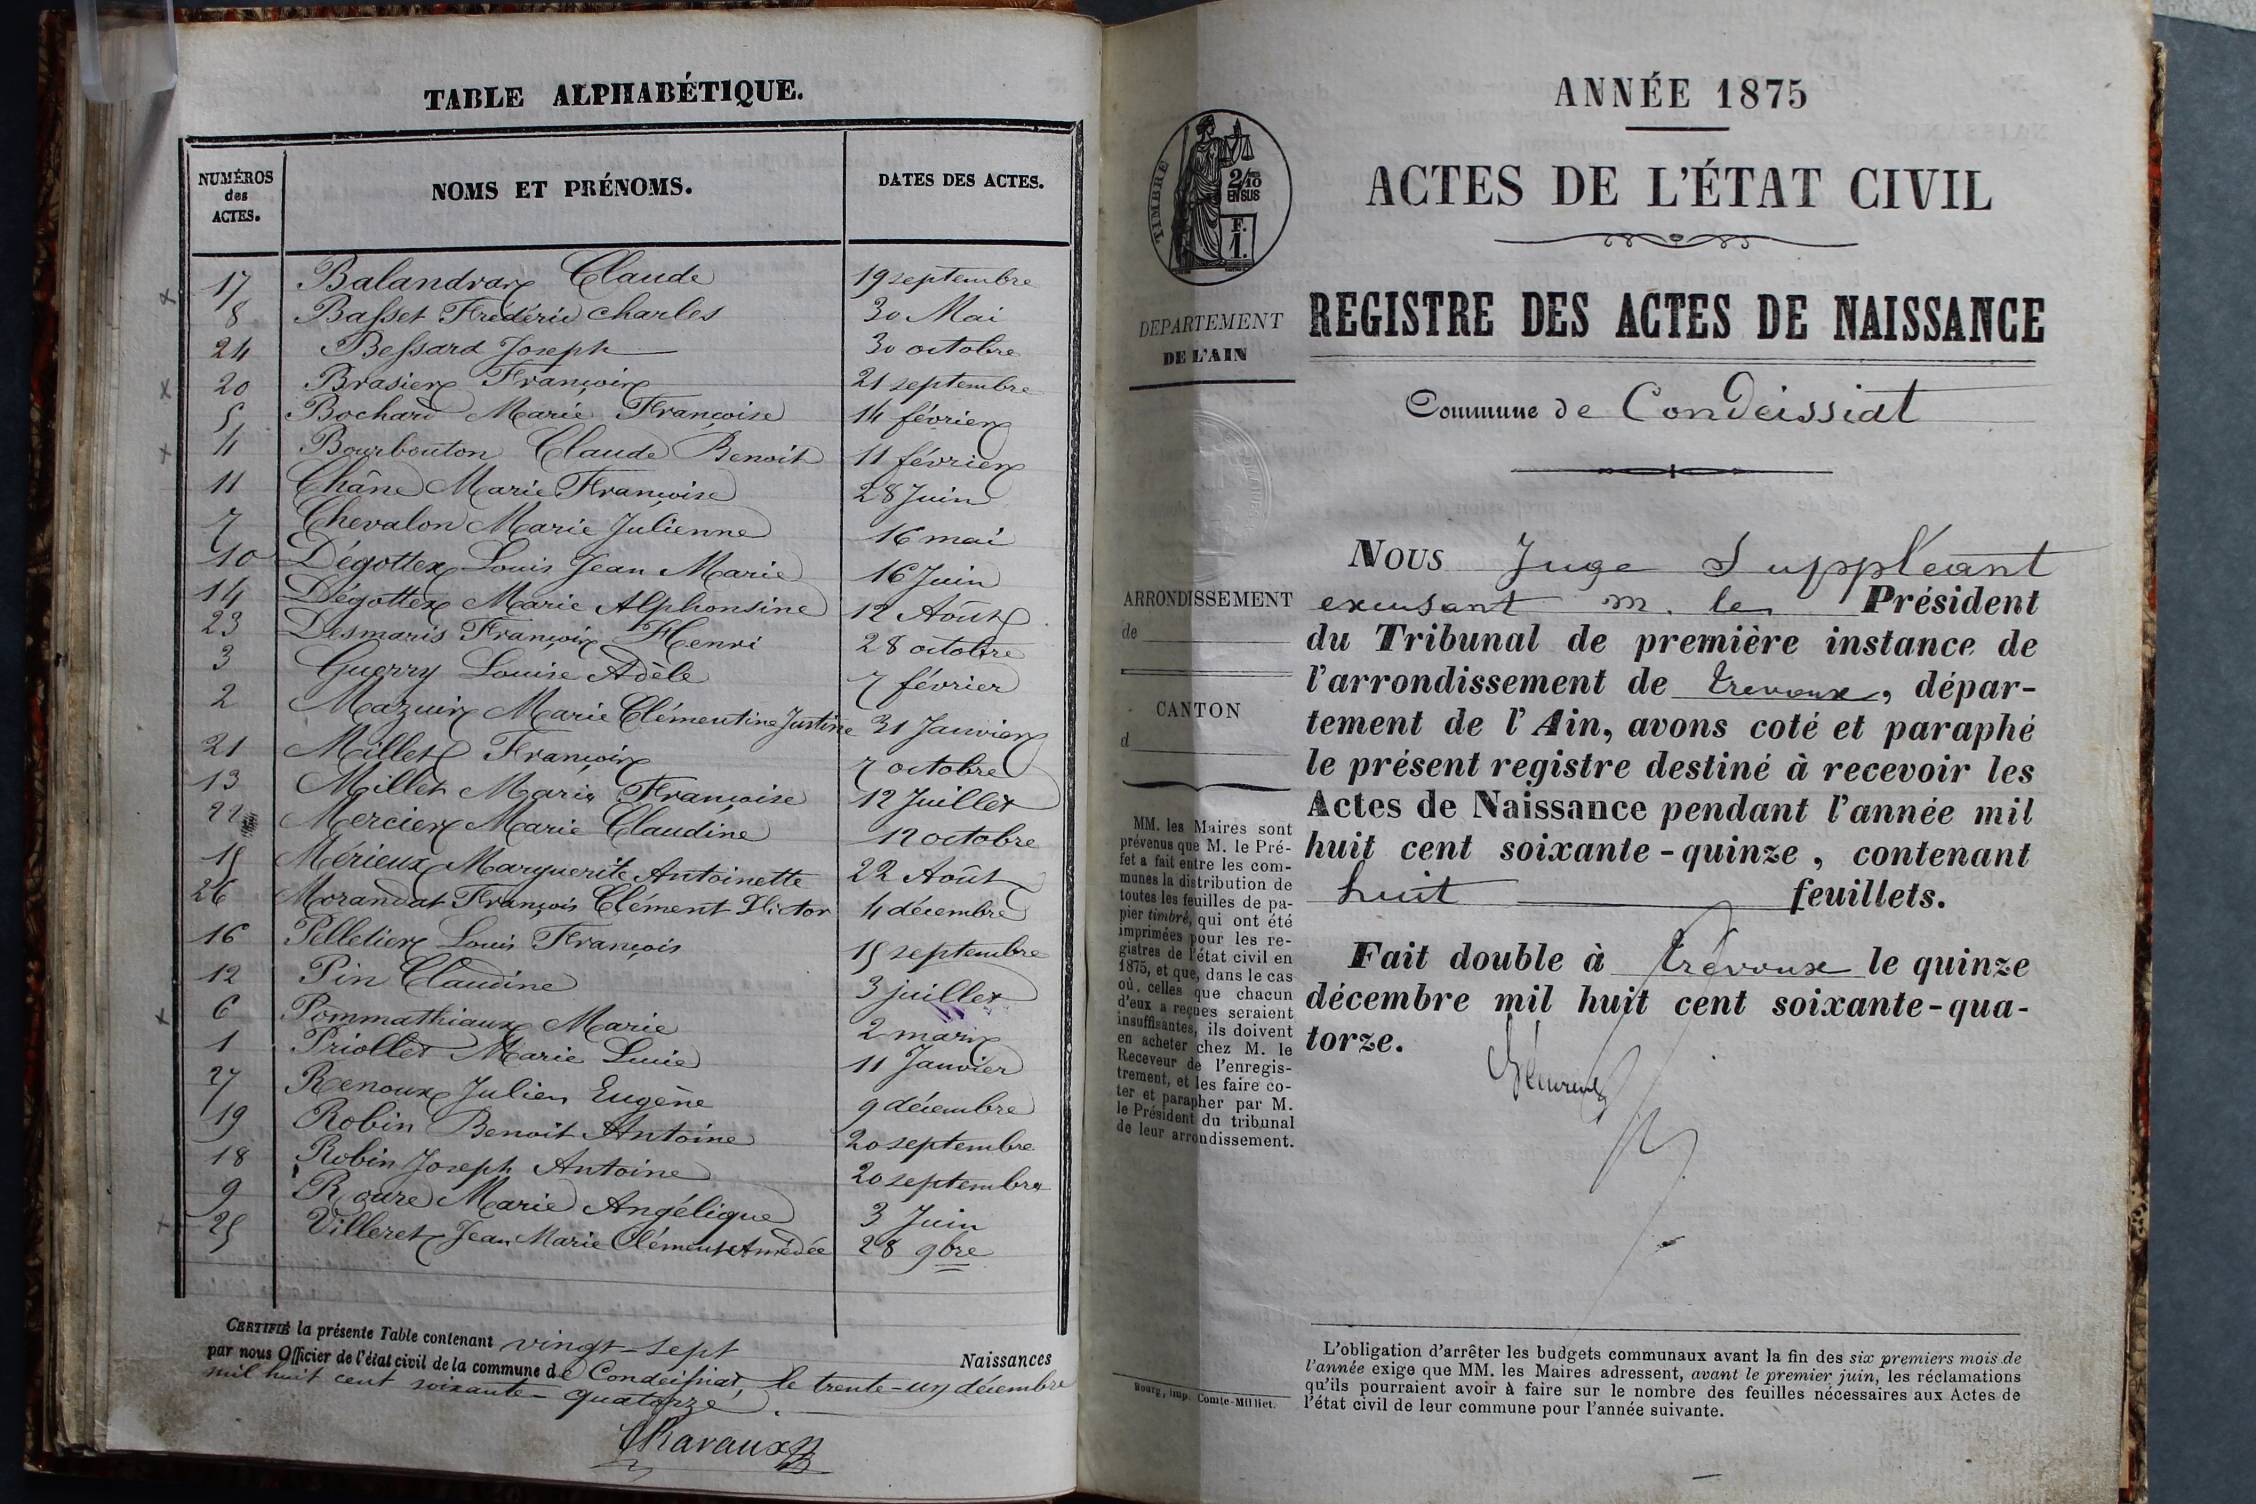 TABLE ALPHABÉTIQUE.
NUMÉROS des ACTES. NOMS ET PRÉNOMS. DATES DES ACTES.
17 Balandrax Claude 19 septembre
8 Basset Frédéric Charles 30 Mai
24 Bessard Joseph 30 octobre
20 Brasier François 21 septembre
5 Bochard Marie Françoise 14 février
4 Bourbouton Claude Benoit 11 février
11 Châne Marie Françoise 28 Juin
7 Chevalon Marie Julienne 16 mai
10 Dégottex Louis Jean Marie 16 Juin
14 Dégottex Marie Alphonsine 12 Août
23 Desmaris François Henri 28 octobre
3 Guerry Louise Adèle 7 février
2 Mazuir Marie Clémentine Justine 31 Janvier
21 Millet François 7 octobre
13 Millet Marie Françoise 12 Juillet
22 Mercier Marie Claudine 12 octobre
15 Mérieux Marguerite Antoinette 22 Août
26 Morandat François Clément Victor 4 décembre
16 Pelletier Louis François 15 septembre
12 Pin Claudine 3 juillet
6 Pommathiaux Marie 2 mars
1 Priollet Marie Lucie 11 Janvier
27 Renoux Julien Eugène 9 décembre
19 Robin Benoit Antoine 20 septembre
18 Robin Joseph Antoine 20 septembre
9 Roure Marie Angélique 3 Juin
25 Villeret Jean Marie Clément Amédée 28 9bre
CERTIFIÉ la présente Table contenant vingt-sept Naissances
par nous Officier de l'état civil de la commune de Condeissiat, le trente-un décembre
mil huit cent soixante-quatorze.
Chavaux
TIMBRE
2/10 EN SUS
F. 1.
DÉPARTEMENT
DE L'AIN
ARRONDISSEMENT
de
CANTON
d
MM. les Maires sont
prévenus que M. le Pré-
fet a fait entre les com-
munes la distribution de
toutes les feuilles de pa-
pier timbré, qui ont été
imprimées pour les re-
gistres de l'état civil en
1875, et que, dans le cas
où, celles que chacun
d'eux a reçues seraient
insuffisantes, ils doivent
en acheter chez M. le
Receveur de l'enregis-
trement, et les faire co-
ter et parapher par M.
le Président du tribunal
de leur arrondissement.
Bourg, imp. Comte-Milliet.
ANNÉE 1875
ACTES DE L'ÉTAT CIVIL
REGISTRE DES ACTES DE NAISSANCE
Commune de Condeissiat
NOUS Juge Suppléant
excusant M. le Président
du Tribunal de première instance de
l'arrondissement de Trevoux, dépar-
tement de l'Ain, avons coté et paraphé
le présent registre destiné à recevoir les
Actes de Naissance pendant l'année mil
huit cent soixante-quinze, contenant
huit feuillets.
Fait double à Trévoux le quinze
décembre mil huit cent soixante-qua-
torze.
L'obligation d'arrêter les budgets communaux avant la fin des six premiers mois de
l'année exige que MM. les Maires adressent, avant le premier juin, les réclamations
qu'ils pourraient avoir à faire sur le nombre des feuilles nécessaires aux Actes de
l'état civil de leur commune pour l'année suivante.